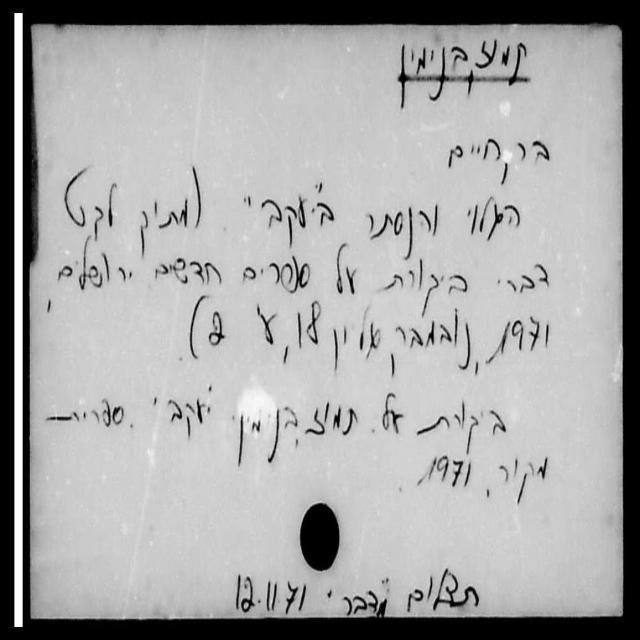 תמוז, בנימין
בר חיים
הגלוי והנסתר ב"יעקב". (מתוך לקט
דברי ביקורת על ספרים חדשים, ירושלים,
1971, נובמבר, גליון 18, ע' 2)
ביקורת על: תמוז, בנימין, "יעקב". ספרית
מקור, 1971.
תצלום מ"דבר" 12.11.71